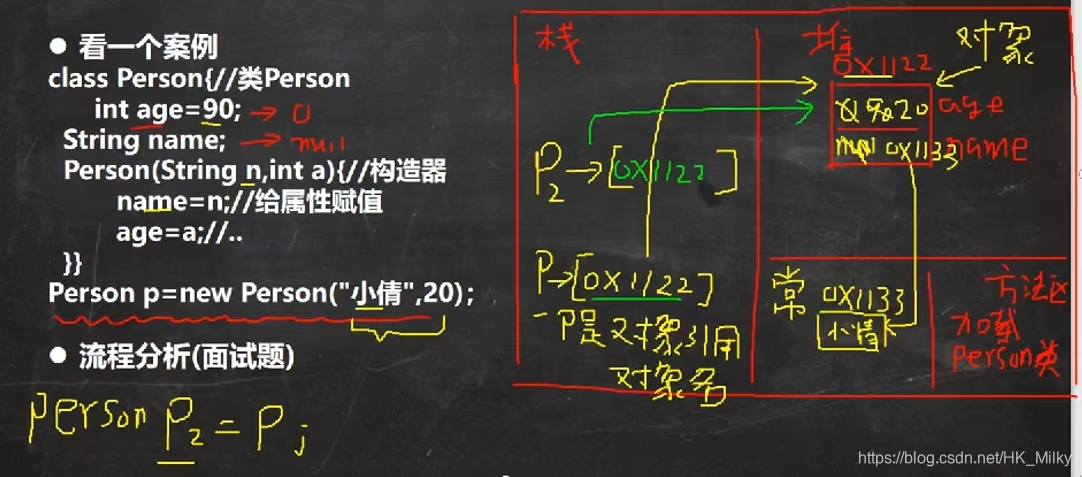 ● 看一个案例
class Person{//类Person
int age=90; → 0
String name; → null
Person(String n,int a){//构造器
name=n;//给属性赋值
age=a;//..
}}
Person p=new Person("小倩",20);
● 流程分析(面试题)
person P2 = P;
栈
P2→[0X1122]
P→[0X1122]
P是对象引用
对象名
堆
对象
0X1122
20 age
null 0X1133 name
常
0X1133
小倩
方法区
加载
Person类
https://blog.csdn.net/HK_Milky